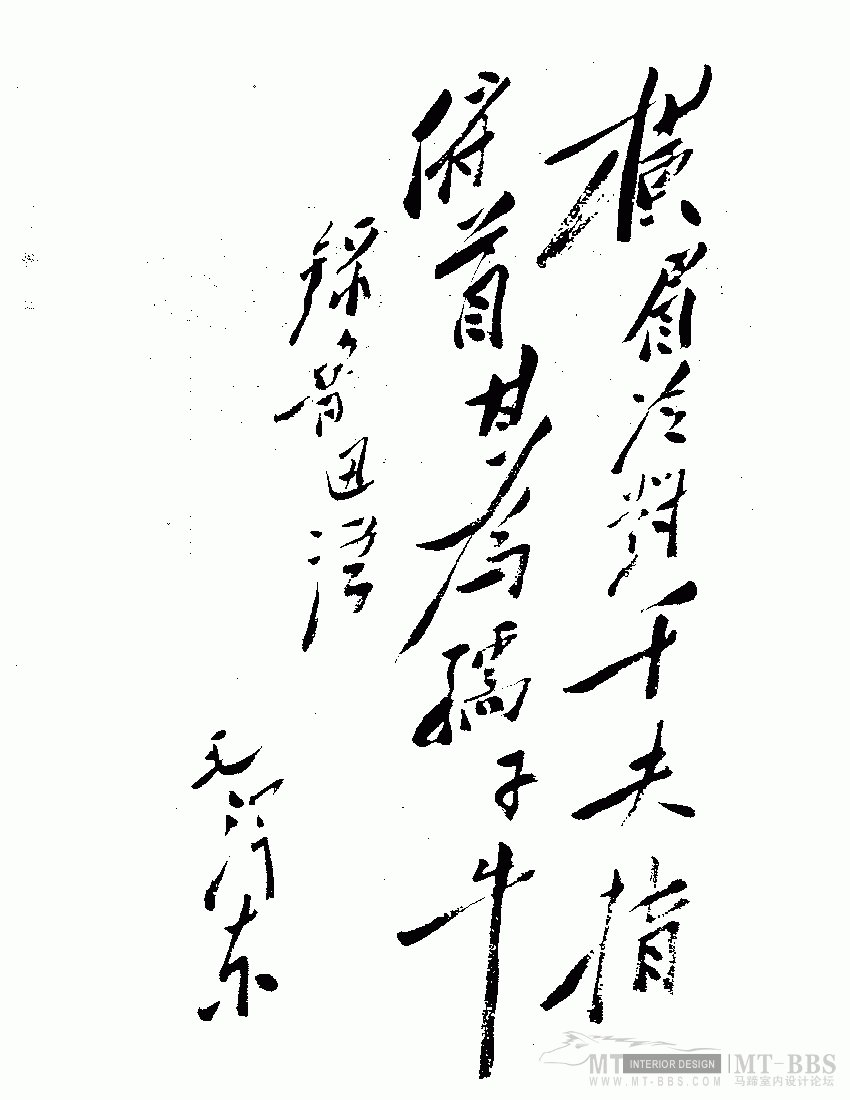 横眉冷對千夫指
俯首甘為孺子牛
錄魯迅語
毛澤东
MT INTERIOR DESIGN MT-BBS
WWW.MT-BBS.COM 马蹄室内设计论坛